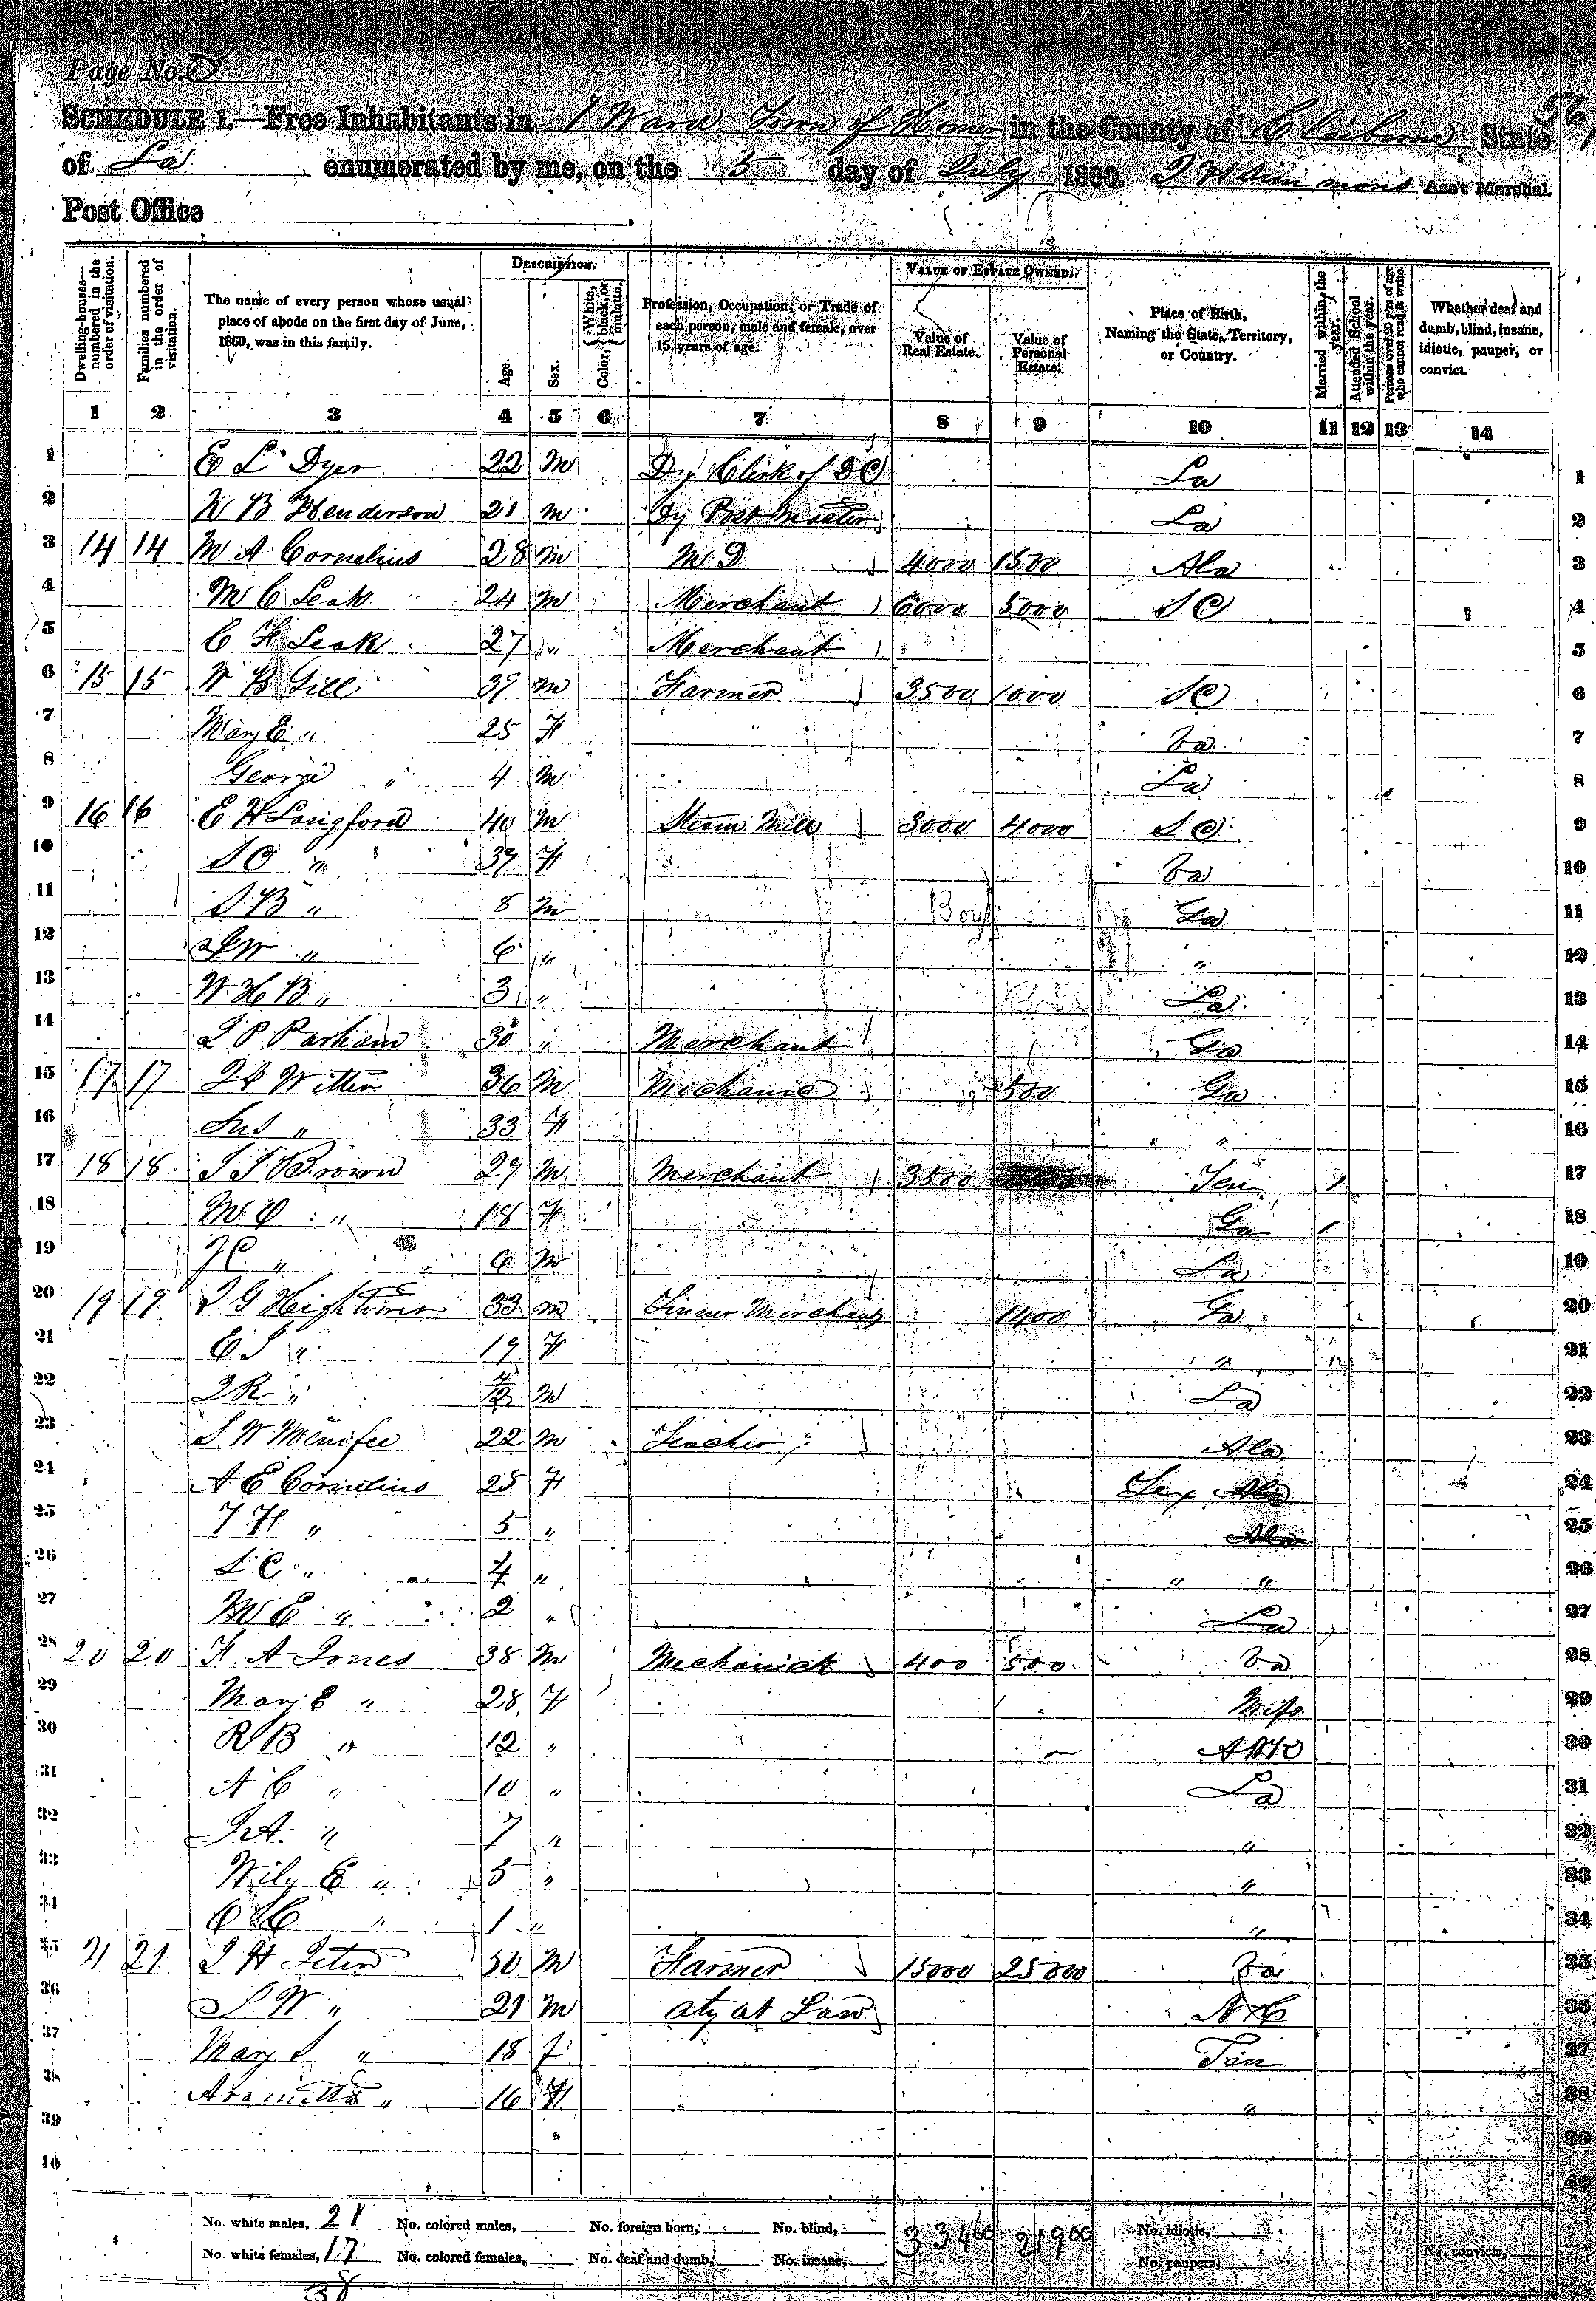 Page No.
SCHEDULE 1.—Free Inhabitants in 7 Ward Town of Homer in the County of Claiborne State
of La enumerated by me, on the 5 day of July 1860. Ass't Marshal.
Post Office
Dwelling-houses—numbered in the order of visitation. Families numbered in the order of visitation. The name of every person whose usual place of abode on the first day of June, 1860, was in this family. DESCRIPTION. Age. Sex. Color, White, black, or mulatto. Profession, Occupation, or Trade of each person, male and female, over 15 years of age. VALUE OF ESTATE OWNED. Value of Real Estate. Value of Personal Estate. Place of Birth, Naming the State, Territory, or Country. Married within the year. Attended School within the year. Persons over 20 y'rs of age who cannot read & write. Whether deaf and dumb, blind, insane, idiotic, pauper, or convict.
1 2 3 4 5 6 7 8 9 10 11 12 13 14
1 E L Dyer 22 M Dy Clerk of D C La 1
2 W B Henderson 21 m Dy Post Master La 2
3 14 14 M A Cornelius 28 m M D 4000 1500 Ala 3
4 M C Leak 24 m Merchant 6000 5000 S C 4
5 C F Leak 27 " Merchant 5
6 15 15 W B Gill 39 M Farmer 3500 1000 S C 6
7 Mary E " 25 F 7
8 George " 4 M La 8
9 16 16 E H Langford 40 M Steam Mill 3000 4000 S C 9
10 S C " 39 F 10
11 S B " 8 M Ga 11
12 W " 6 " " 12
13 W. H. B " 3 " La 13
14 P Parham 30 " Merchant Ga 14
15 17 17 Witter 36 M Mechanic 500 Ga 15
16 " 33 F " 16
17 18 18 Brown 29 M Merchant 3500 Ten 1 17
18 M C " 18 F Ga 1 18
19 J C " 6 M La 19
20 19 19 J G Hightower 33 m Merchant 1400 Ga 20
21 E S " 19 F " 21
22 J R " 4/12 M La 22
23 S W Menifee 22 m Teacher Ala 23
24 A E Cornelius 25 F Tex 24
25 " 5 " 25
26 L C " 4 " " " 26
27 M E " 2 " La 27
28 20 20 F. A Jones 38 m Mechanick 400 500 28
29 Mary E " 28 F Miss 29
30 R B " 12 " ARK 30
31 A C " 10 " La 31
32 J A. " 7 " " 32
33 Wily E " 5 " " 33
34 " 1 " " 34
35 21 21 J H 50 M Farmer 15000 25000 35
36 S W " 21 M aty at Law N C 36
37 Mary S " 18 f Ten 37
38 " 16 F " 38
39 39
40 40
No. white males, 21 No. colored males, No. foreign born, No. blind, 33400 21900 No. idiotic,
No. white females, 17 No. colored females, No. deaf and dumb, No. insane, No. paupers, No. convicts,
38